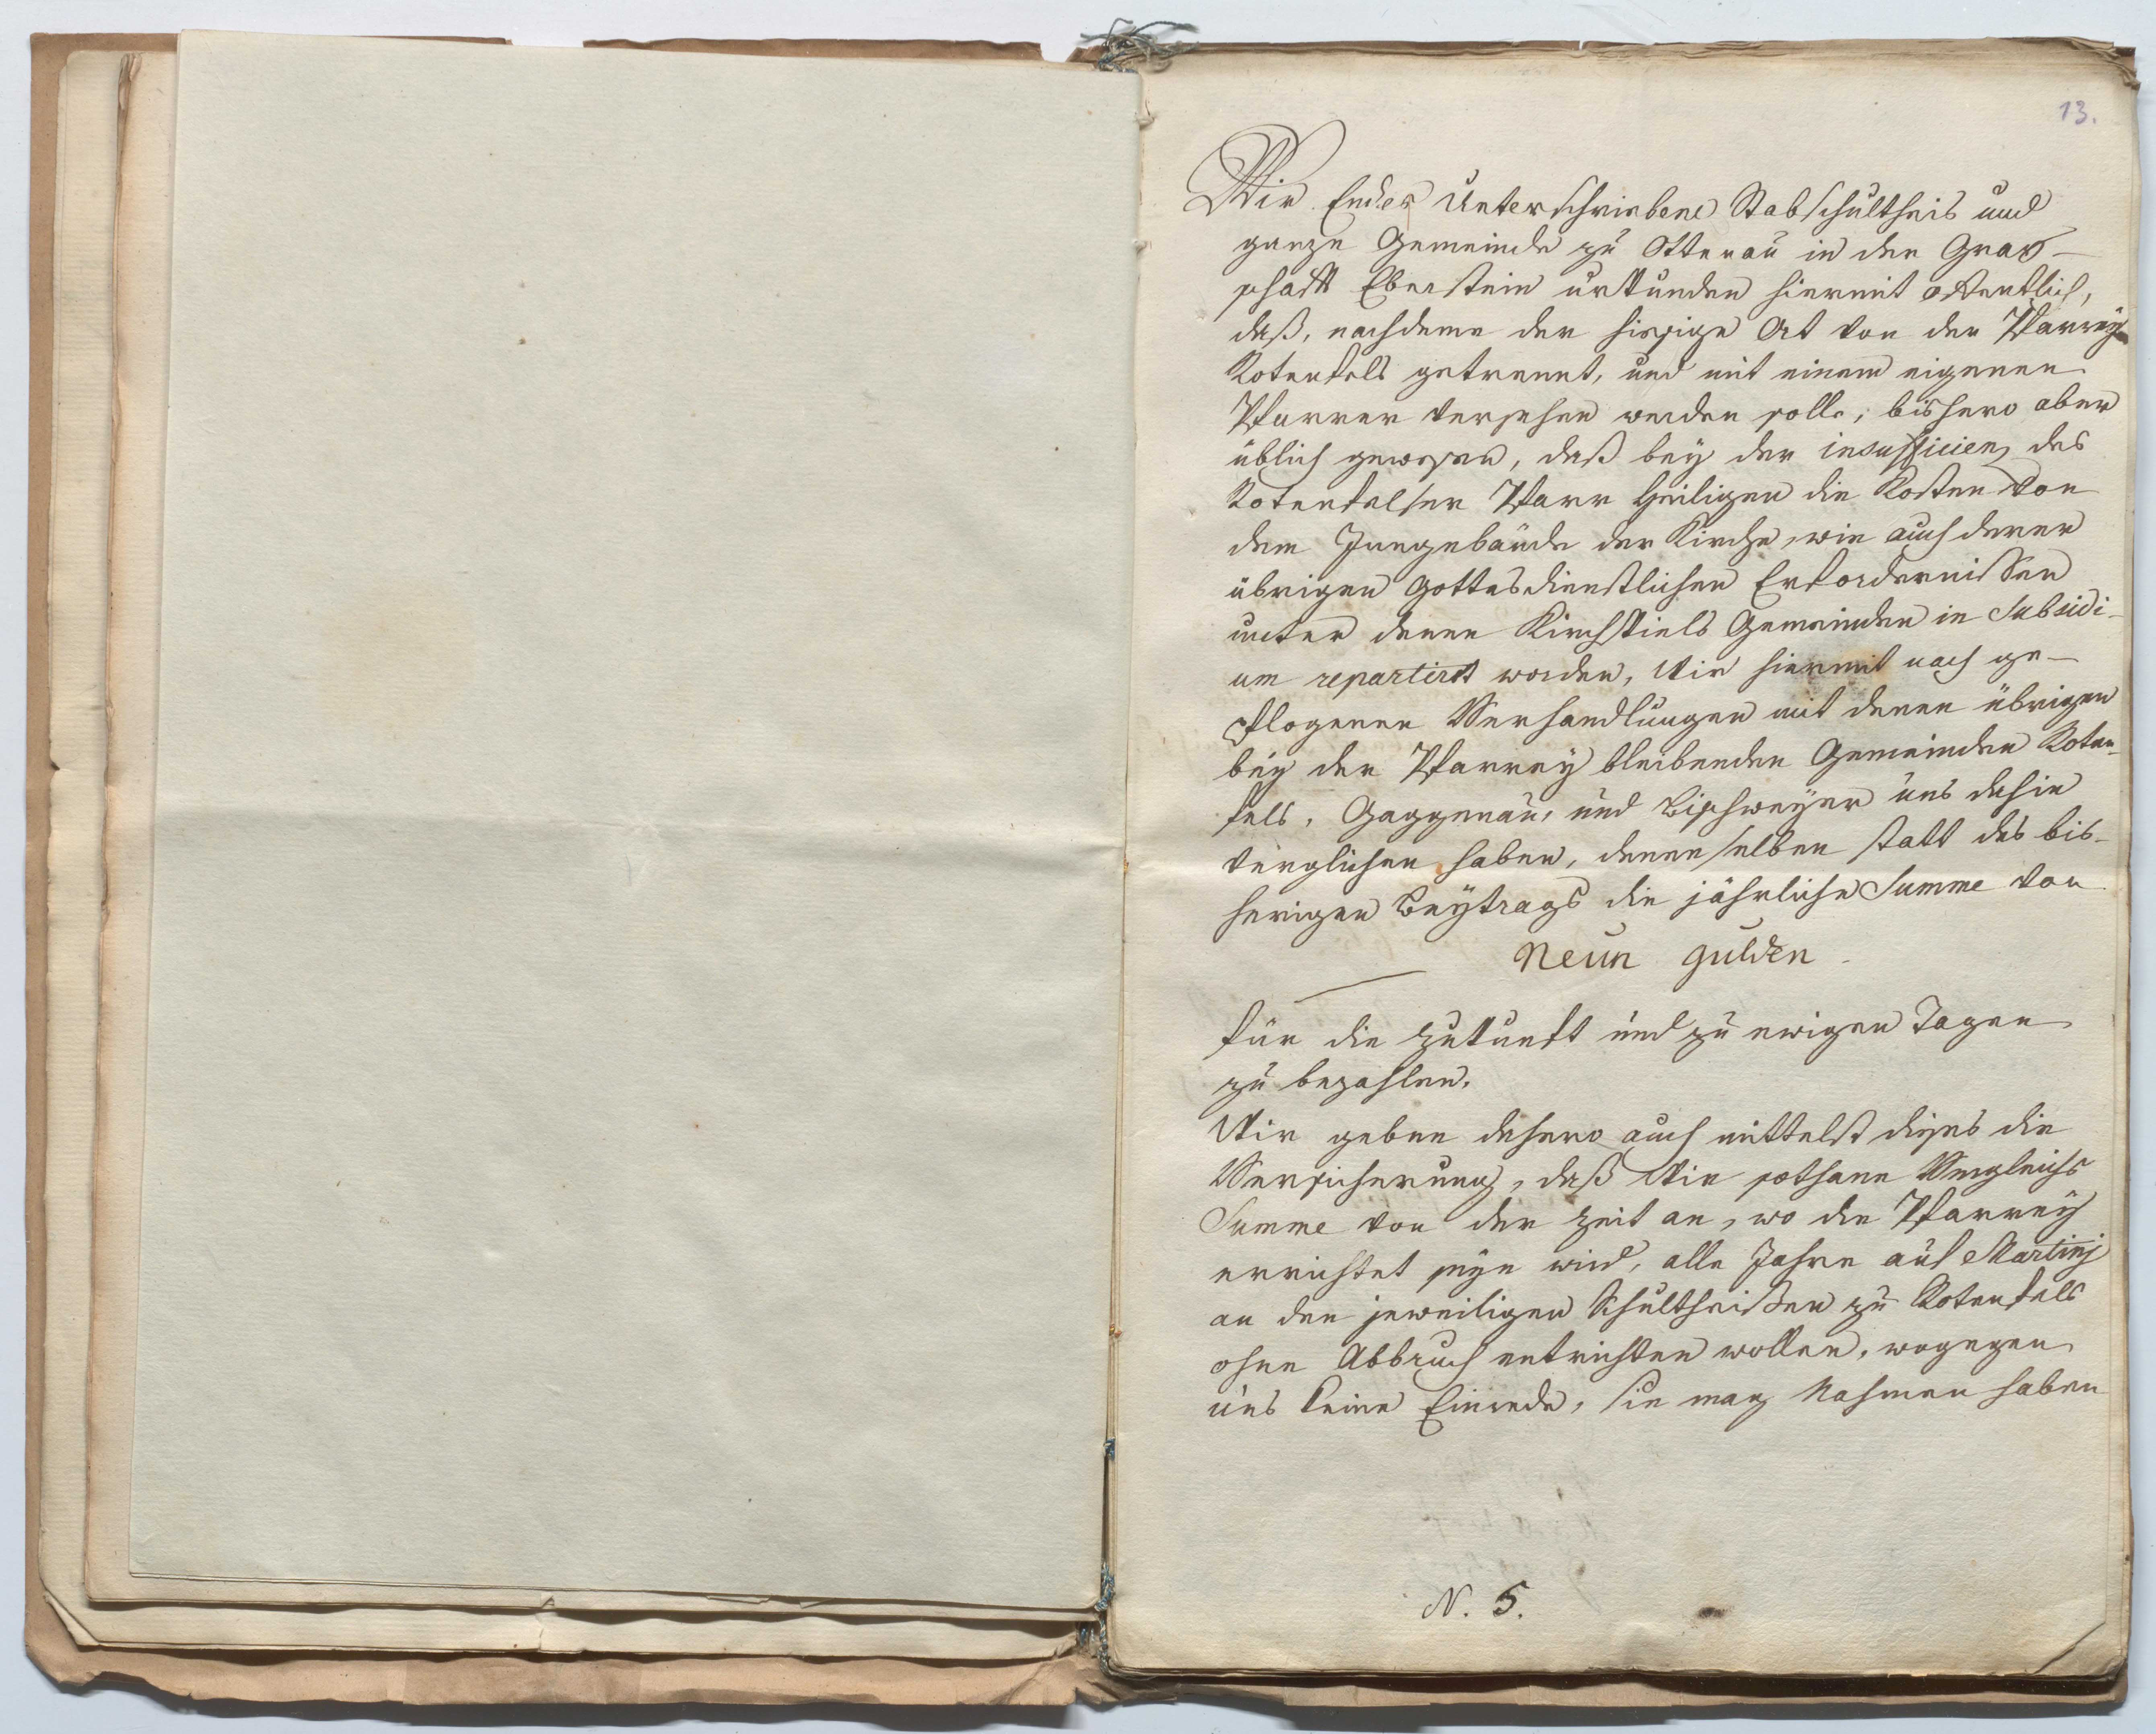 13.
Wir Endes Unterschriebene Stabschultheis und
ganze Gemeinde zu Ottenau in der Grav-
schafft Eberstein urkunden hiermit öffentlich,
daß, nachdeme der hiesige Ort von der Pfarrey
Rotenfels getrennt, und mit einem eigenen
Pfarrer versehen werden solle, bishero aber
üblich gewesen, daß bey der insufficienz des
Rotenfelser Pfarr Heiligen die Kosten von
dem Inngebäude der Kirche, wie auch derer
übrigen Gottesdienstlichen Erfordernissen
unter denen Kirchspiels Gemeinden in Subsidi-
um repartirt worden, Wir hiermit nach ge-
pflogenen Verhandlungen mit denen übrigen
bey der Pfarrey bleibenden Gemeinden Roten-
fels, Gaggenau, und Bischweyer uns dahin
verglichen haben, denenselben statt des bis-
herigen Beytrags die jährliche Summe von
Neun Gulden
für die Zukunft und zu ewigen Tagen
zu bezahlen.
Wir geben dahero auch mittelst dieses die
Versicherung, daß Wir sothane Vergleichs
Summe von der Zeit an, wo die Pfarrey
errichtet seyn wird, alle Jahre auf Martinj
an den jeweiligen Schultheißen zu Rotenfels
ohne Abbruch entrichten wollen, wogegen
uns keine Einrede, sie mag Nahmen haben
N. 5.